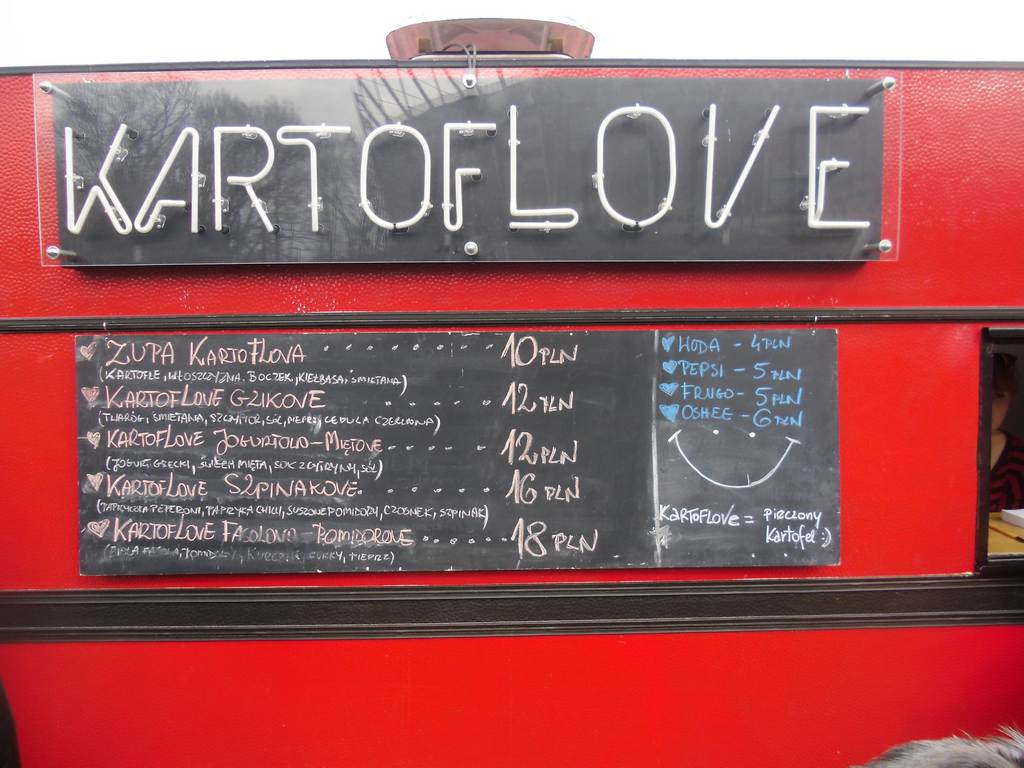 KARTOFLOVE
ZUPA KARTOFLOVA 10 PLN
(KARTOFLE, WŁOSZCZYZNA, BOCZEK, KIEŁBASA, ŚMIETANA)
KARTOFLOVE GZIKOVE 12 PLN
(TWARÓG, ŚMIETANA, SZCZYPIOR, SÓL, PIEPRZ, CEBULA CZERWONA)
KARTOFLOVE JOGURTOLO-MIĘTOVE 12 PLN
(JOGURT GRECKI, ŚWIEŻA MIĘTA, SOK Z CYTRYNY, SÓL)
KARTOFLOVE SZPINAKOVE 16 PLN
(PAPRYCZKA PEPERONI, PAPRYKA CHILLI, SUSZONE POMIDORY, CZOSNEK, SZPINAK)
KARTOFLOVE FASOLOVO-POMIDOROVE 18 PLN
(BIAŁA FASOLA, POMIDORY, CURRY, PIEPRZ)
WODA - 4 PLN
PEPSI - 5 PLN
FRUGO - 5 PLN
OSHEE - 6 PLN
KARTOFLOVE = PIECZONY
KARTOFEL :)